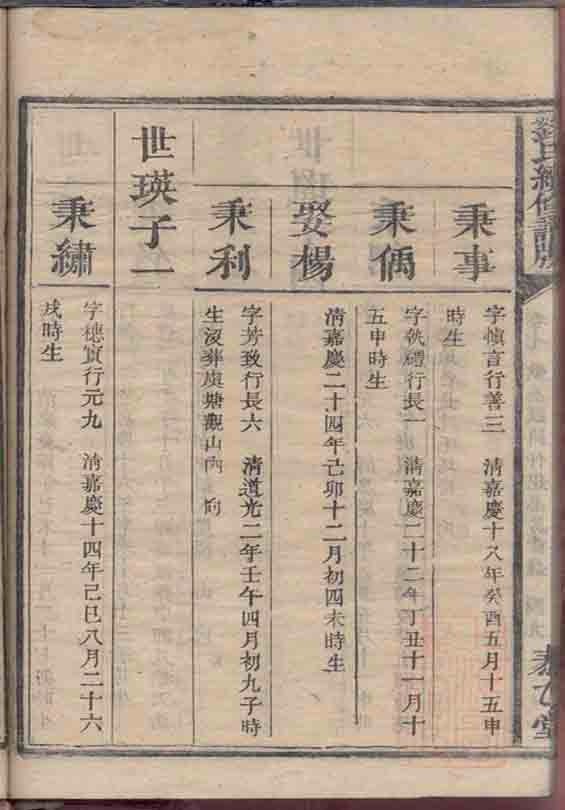 秉事
字慎言行善三　清嘉慶十八年癸酉五月十五申
時生
秉偶
字執禮行長一　清嘉慶二十二年丁丑十一月十
五申時生
娶楊
清嘉慶二十四年己卯十二月初四未時生
秉利
字芳致行長六　清道光二年壬午四月初九子時
生沒葬虞塘觀山內　向
世瑛子一
秉繡
字穗實行元九　清嘉慶十四年己巳八月二十六
戌時生